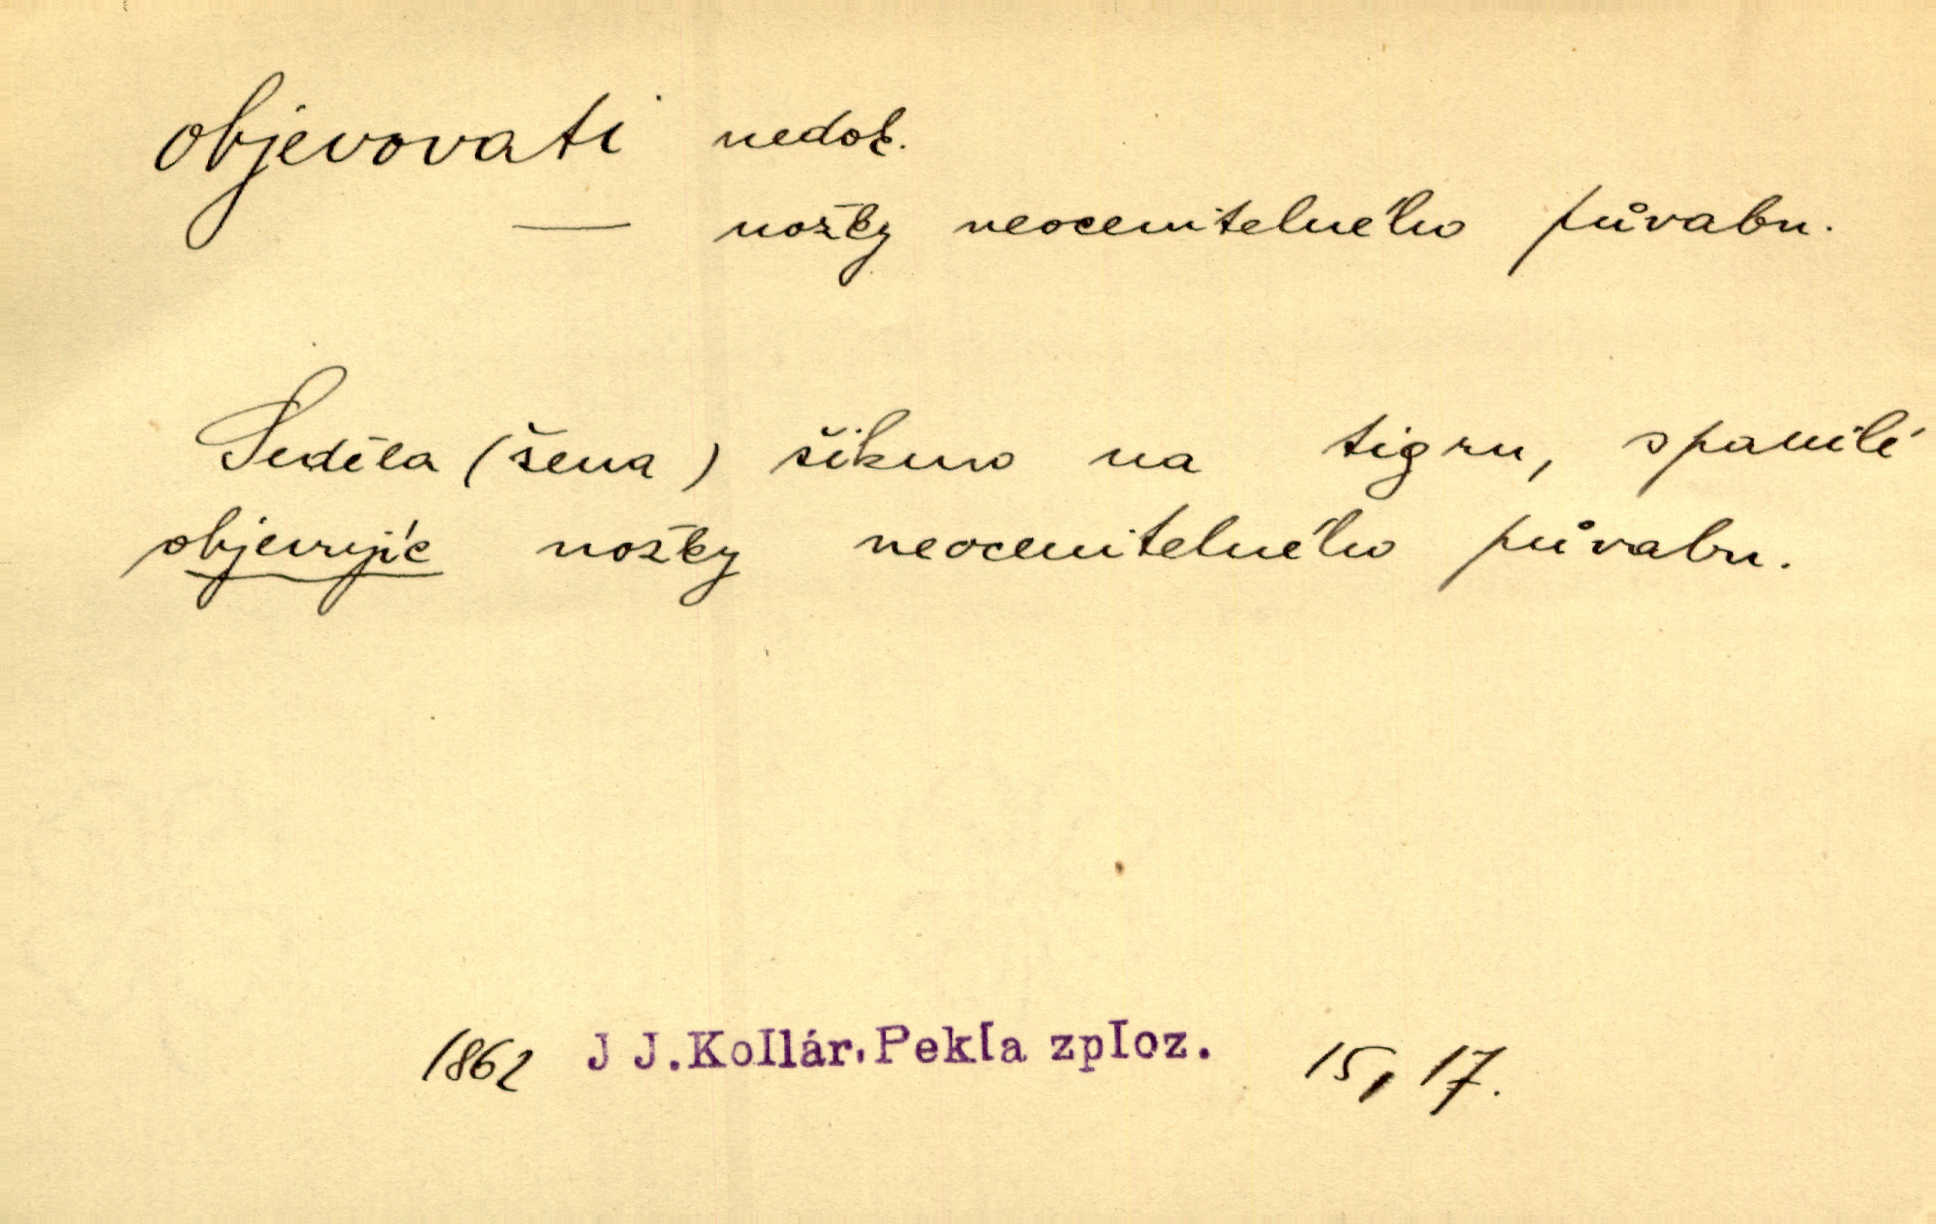 objevovati nedok.
— nožky neocenitelného půvabu.
Seděla (žena) šikmo na tigru, spanilé
objevujíc nožky neocenitelného půvabu.
1862 J J.Kollár.Pekla zploz. 15, 17.